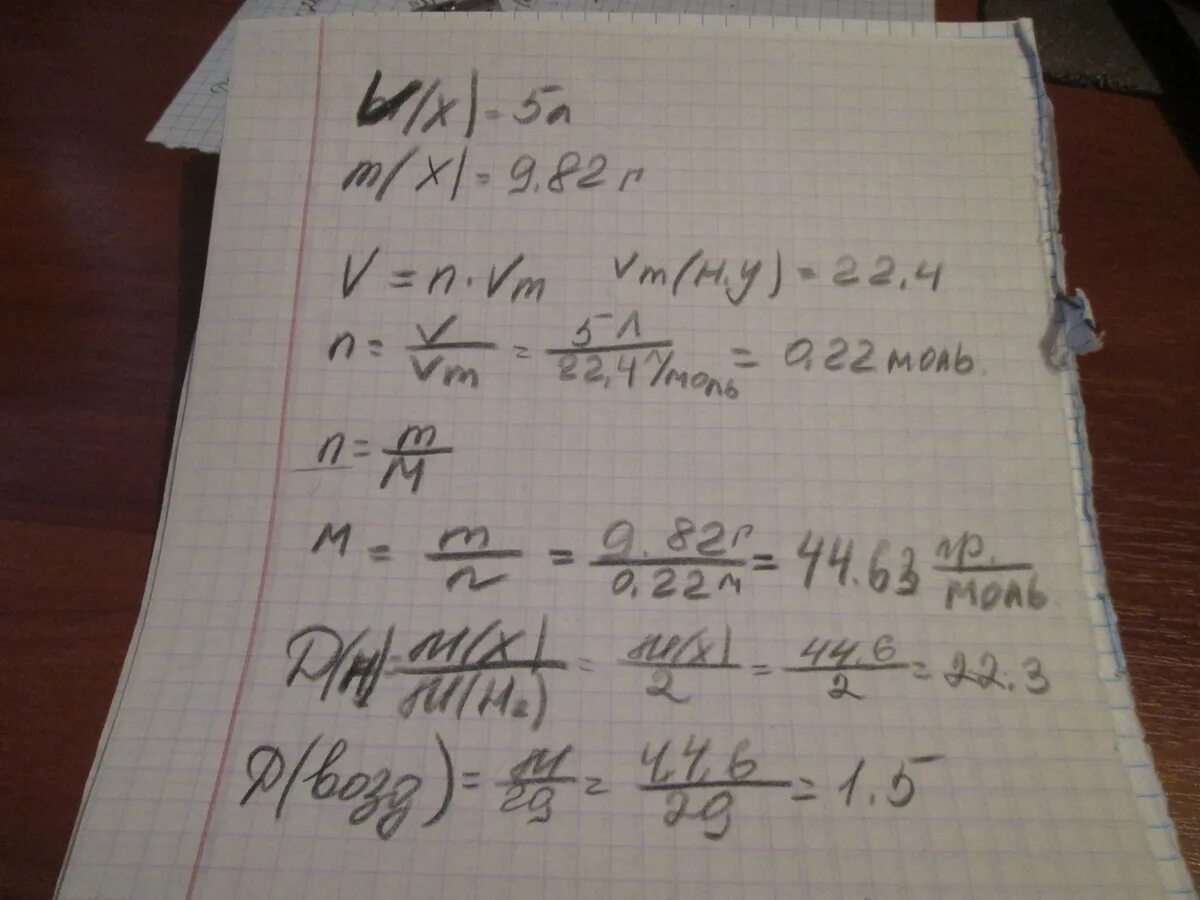 V(X) = 5л
m(X) = 9.82 г
V = n · Vm Vm(н.у) = 22,4
n = V/Vm = 5 л/22,4 л/моль = 0.22 моль
n = m/M
M = m/n = 9.82 г/0.22 м = 44.63 гр./моль
Д(H) = M(X)/M(H₂) = M(X)/2 = 44.6/2 = 22.3
Д(возд) = M/29 = 44,6/29 = 1.5